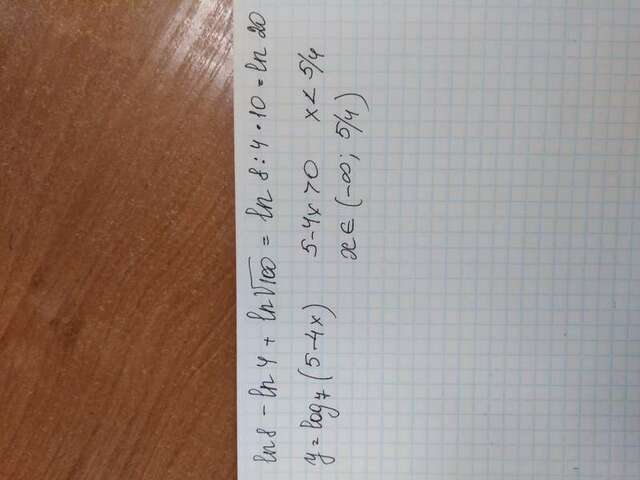 ln 8 - ln 4 + ln√100 = ln 8 : 4 • 10 = ln 20
y = log₇ (5-4x) 5-4x>0 x < 5/4
x ∈ (-∞; 5/4)